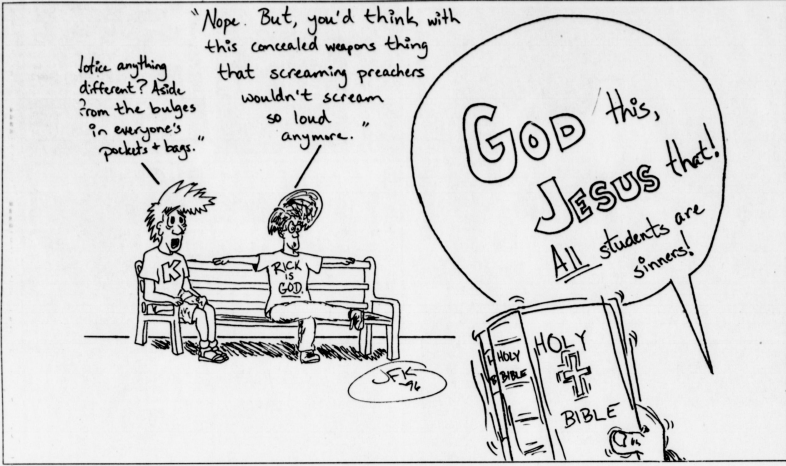 otice anything
different? Aside
from the bulges
in everyone's
pockets + bags."
"Nope. But, you'd think with
this concealed weapons thing
that screaming preachers
wouldn't scream
so loud
anymore."
GOD this,
JESUS that!
All students are
sinners!
K
RICK
IS
GOD.
JFK
-96
HOLY
BIBLE
HOLY
BIBLE